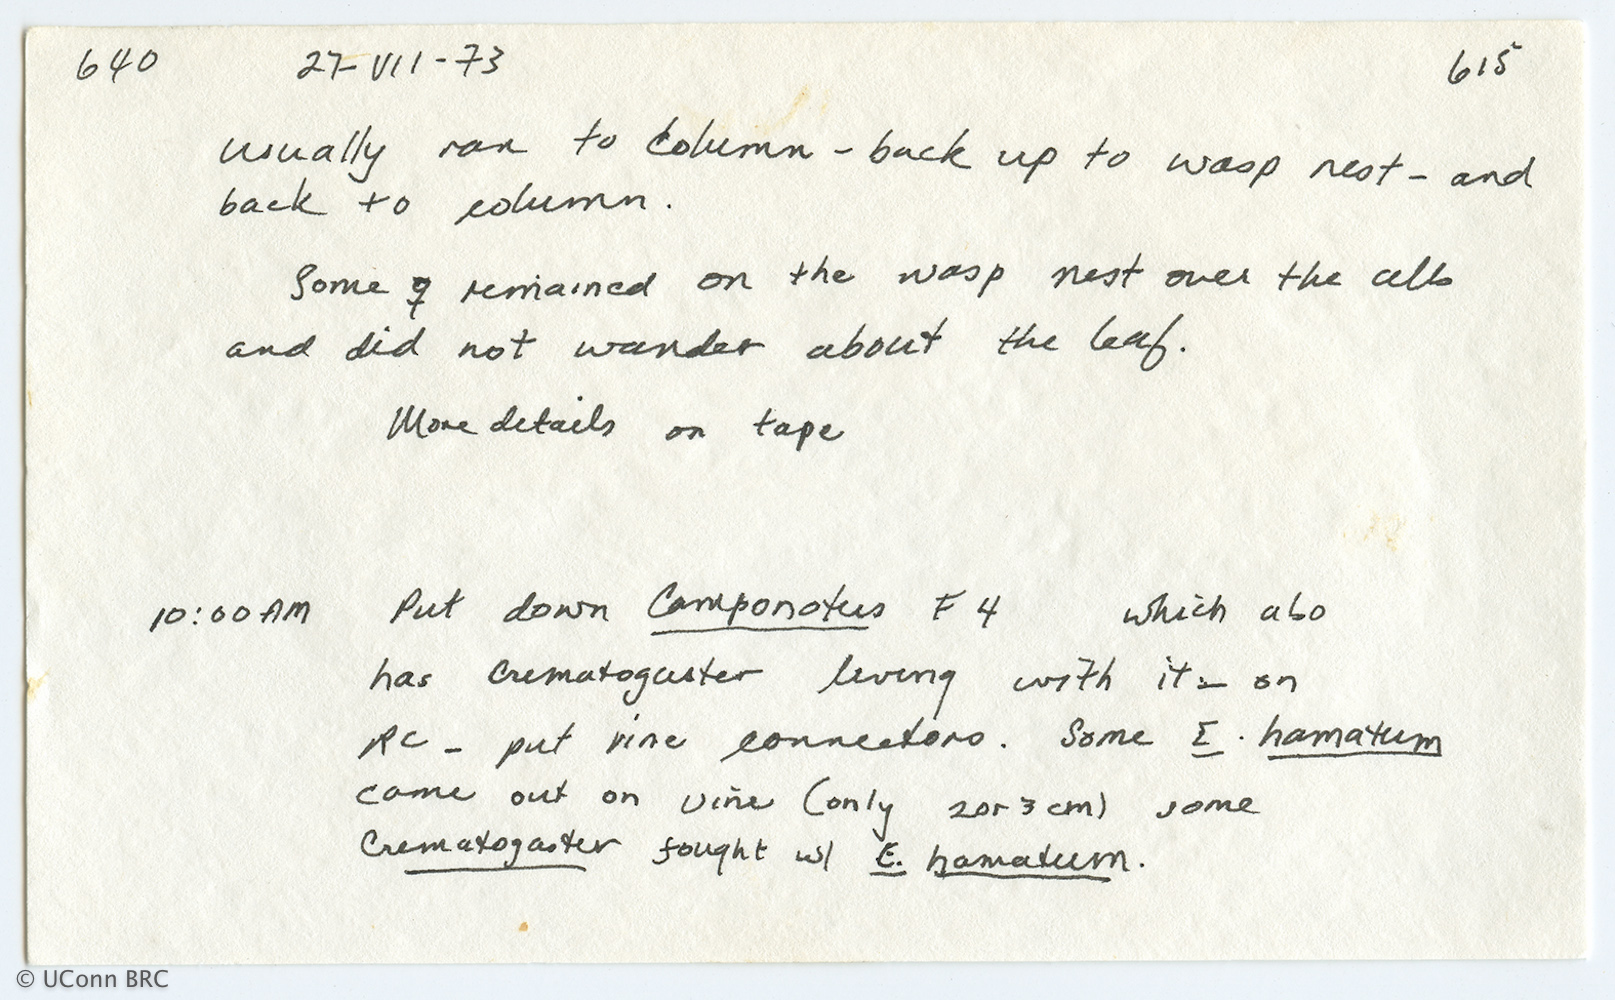 640 27-VII-73 615
usually ran to column - back up to wasp nest - and
back to column.
Some ☿ remained on the wasp nest over the cells
and did not wander about the leaf.
More details on tape
10:00 AM Put down Camponotus F4 which also
has Crematogaster living with it - on
RC - put vine connectors. Some E. hamatum
came out on vine (only 2 or 3 cm) some
Crematogaster fought w/ E. hamatum.
© UConn BRC